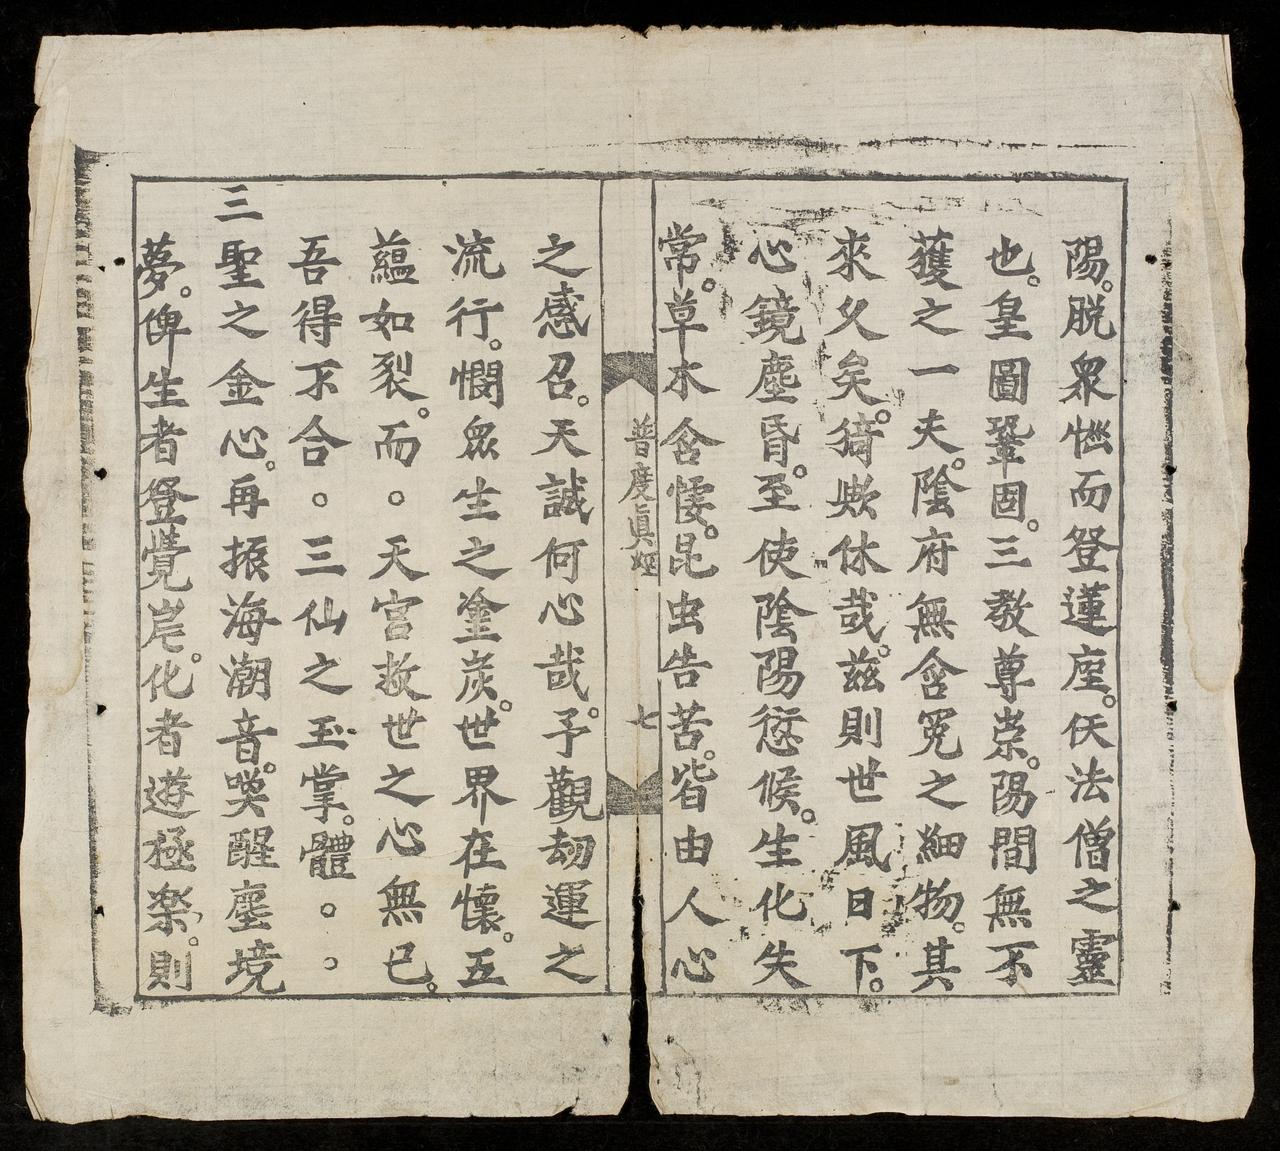 陽。脱衆愆而登蓮座。仗法僧之靈
也。皇圖鞏固。三教尊崇。陽間無不
獲之一夫。陰府無含冤之細物。其
來久矣。猗歟休哉。兹則世風日下。
心鏡塵昏。至使陰陽愆候。生化失
常。草木含悽。昆虫告苦。皆由人心
普度眞經
七
之感召。天誠何心哉。予觀劫運之
流行。憫衆生之塗炭。世界在懷。五
蘊如裂。而。天宮救世之心無已。
吾得不合。三仙之玉掌。體。。
三聖之金心。再振海潮音。喚醒塵境
夢。俾生者登覺岸。化者遊極楽。則